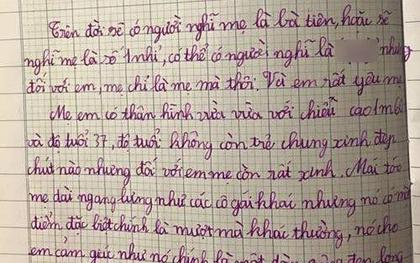 Trên đời sẽ có người nghĩ mẹ là bà tiên, hoặc sẽ
nghĩ mẹ là số 1 nhỉ, có thể có người nghĩ là nhưng
đối với em, mẹ chỉ là mẹ mà thôi. Và em rất yêu mẹ
Mẹ em có thân hình vừa vừa với chiều cao 1m
và độ tuổi 37, độ tuổi không còn trẻ chung xinh đẹp
chút nào nhưng đối với em mẹ còn rất xinh. Mái tóc
mẹ dài ngang lưng như các cô gái khác nhưng nó có một
điểm đặc biệt chính là mượt mà khác thường, nó cho
em cảm giác như nó chính là một